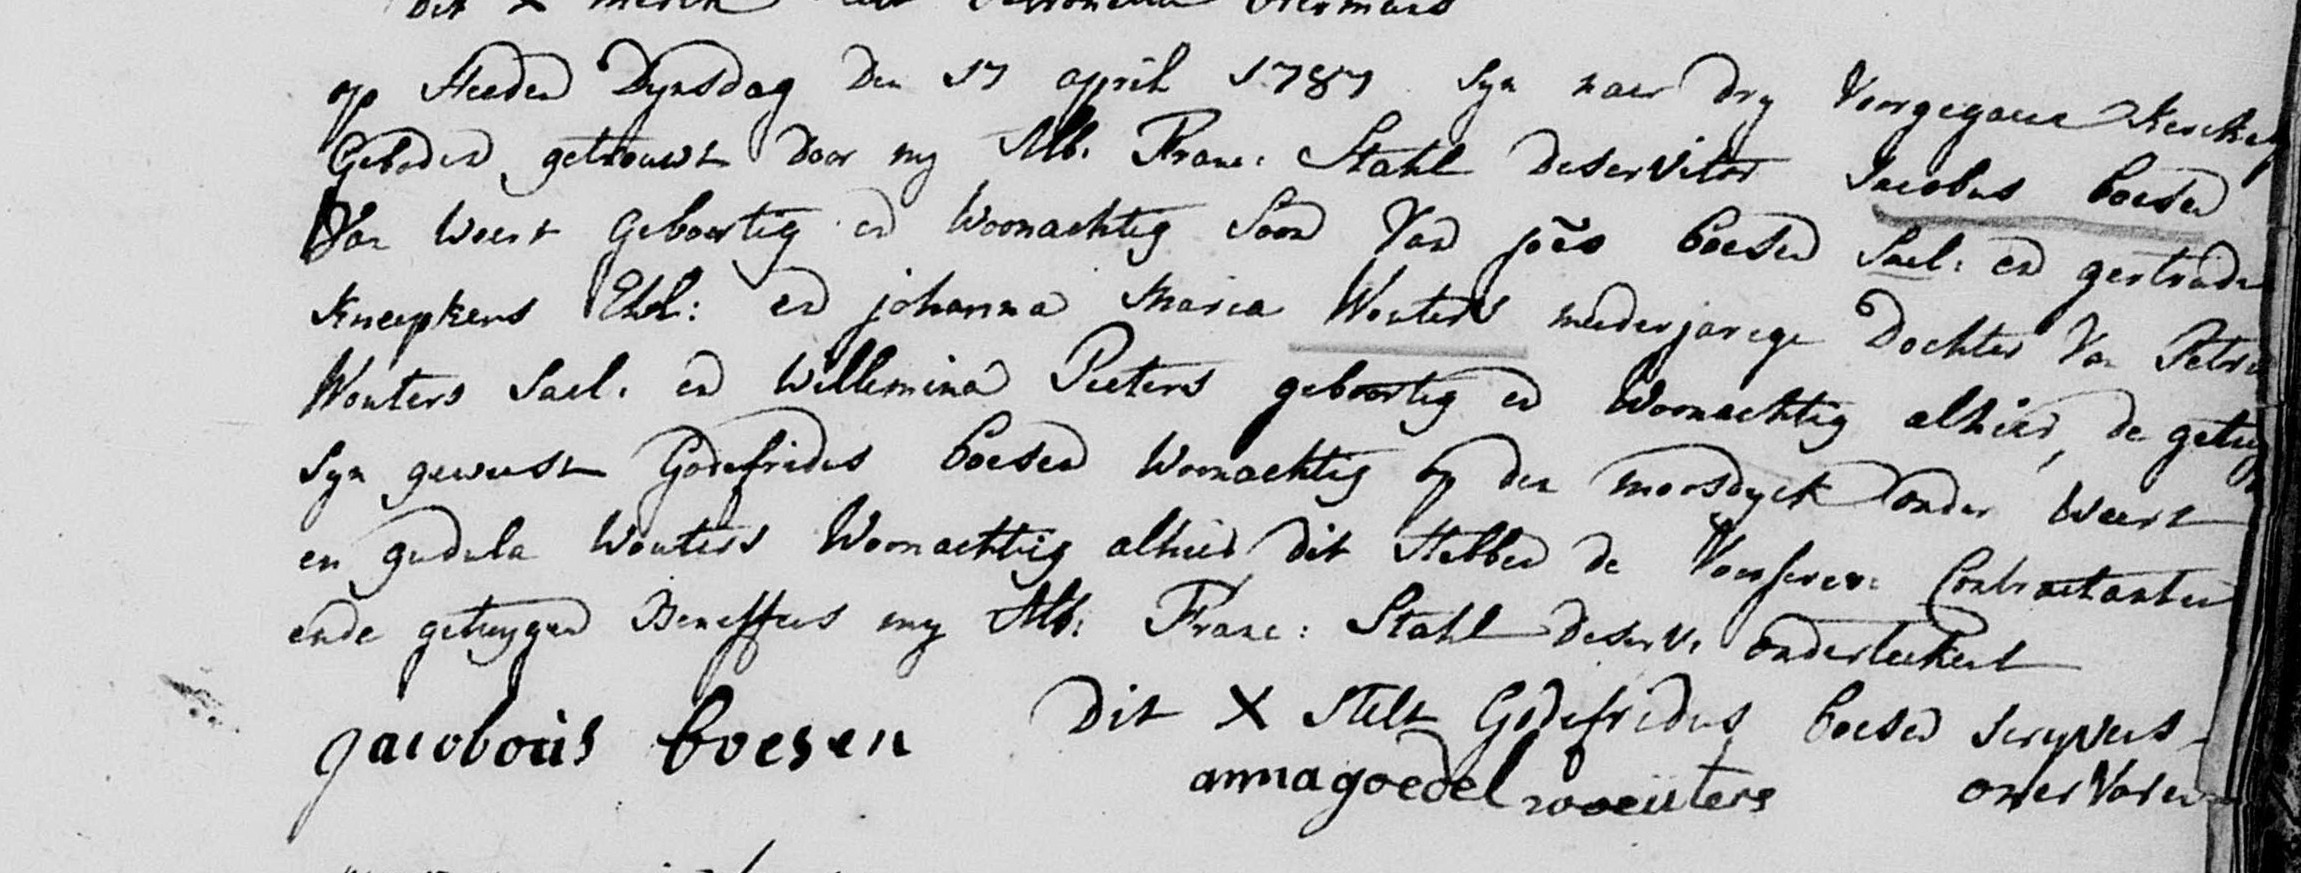 dit X merck
op Heeden Dynsdag den 17 april 1787 syn naer dry Voorgegaene Kerckely
Geboden getrouwt door my Alb: Franc: Stahl deservitor Jacobus Coesen
Van Weert Geboortig en Woonachtig Soon Van joes Coesen Sael: en gertrudis
Kneepkens Ehl: en johanna Maria Wouters minderjarige Dochter Van Petrus
Wouters Sael. en Willemina Peeters geboortig en Woonachtig alhier, de getuyg
syn geweest Godefridus Coesen Woonachtig op den moosdyck onder Weert
en gudula Wouters Woonachtig alhier dit Hebben de Voorschrev: Contractanten
ende getuygen Beneffens my Alb: Franc: Stahl deserv: onderteekent
jacobous Coesen Dit X stelt Godefridus Coesen scryvens
annagoedel woeuters onervaren